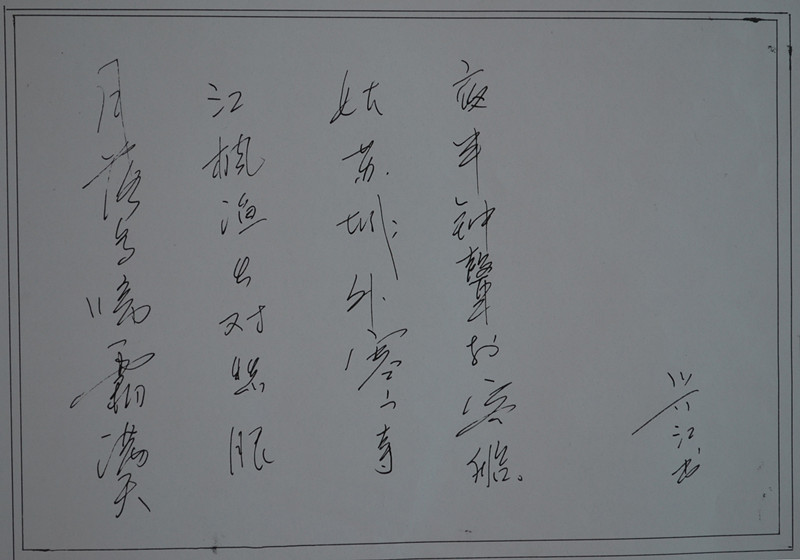 月落乌啼霜满天
江枫渔火对愁眠
姑苏城外寒山寺
夜半钟聲到客船。
兴江书